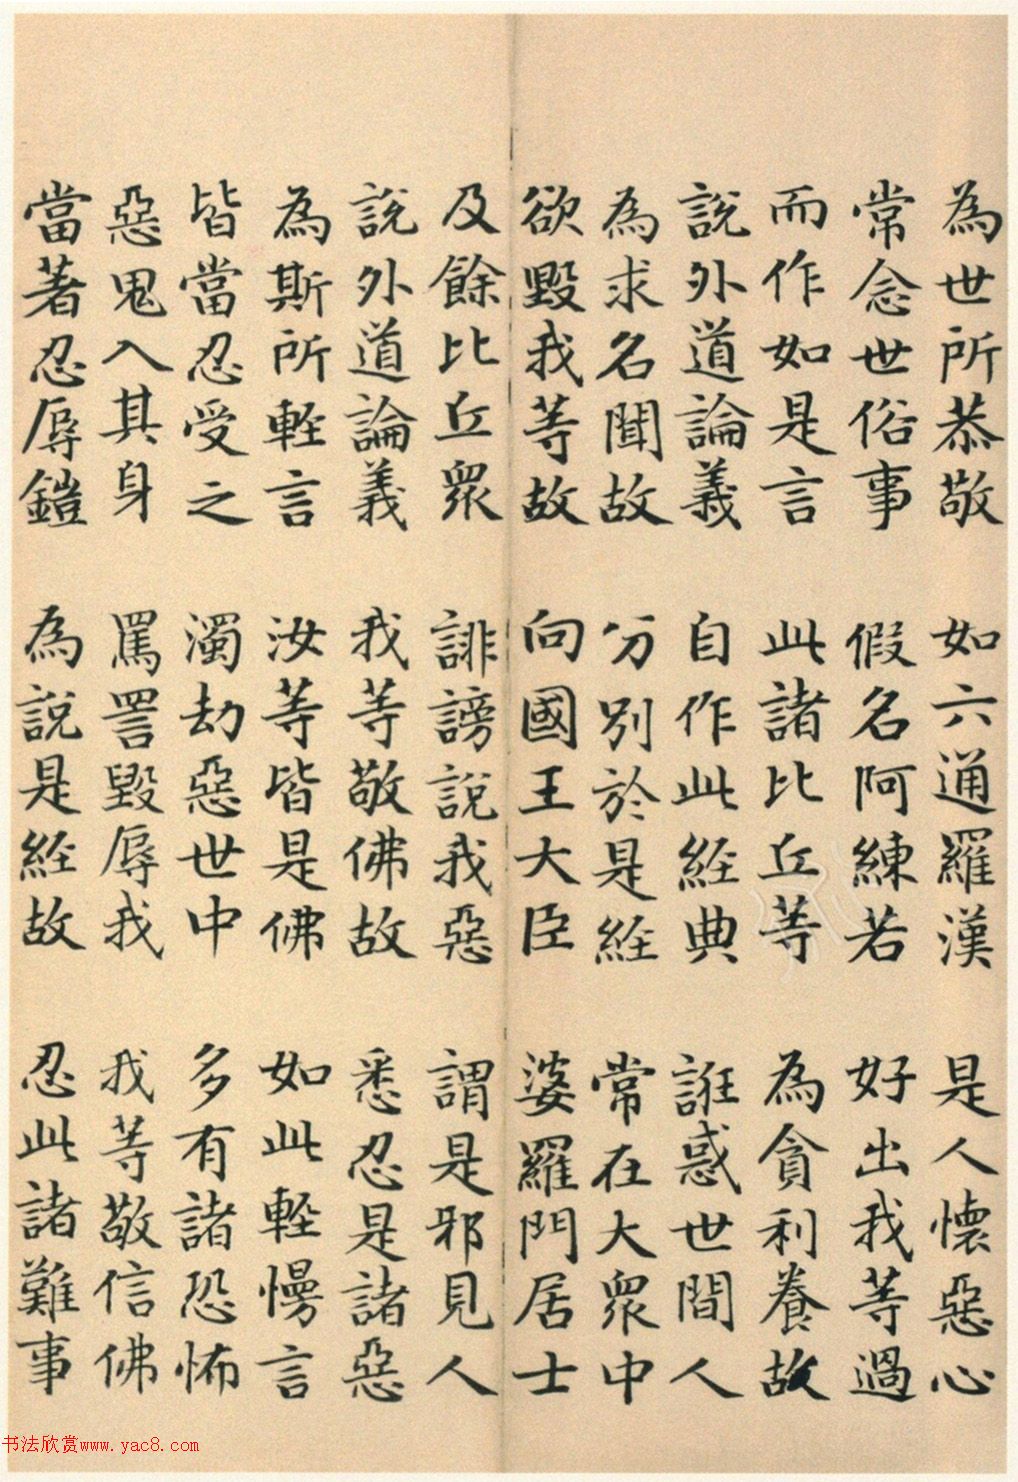 為世所恭敬 如六通羅漢 是人懷惡心
常念世俗事 假名阿練若 好出我等過
而作如是言 此諸比丘等 為貪利養故
說外道論義 自作此經典 誑惑世間人
為求名聞故 分別於是經 常在大眾中
欲毀我等故 向國王大臣 婆羅門居士
及餘比丘眾 誹謗說我惡 謂是邪見人
說外道論義 我等敬佛故 悉忍是諸惡
為斯所輕言 汝等皆是佛 如此輕慢言
皆當忍受之 濁劫惡世中 多有諸恐怖
惡鬼入其身 罵詈毀辱我 我等敬信佛
當著忍辱鎧 為說是經故 忍此諸難事
书法欣赏www.yac8.com